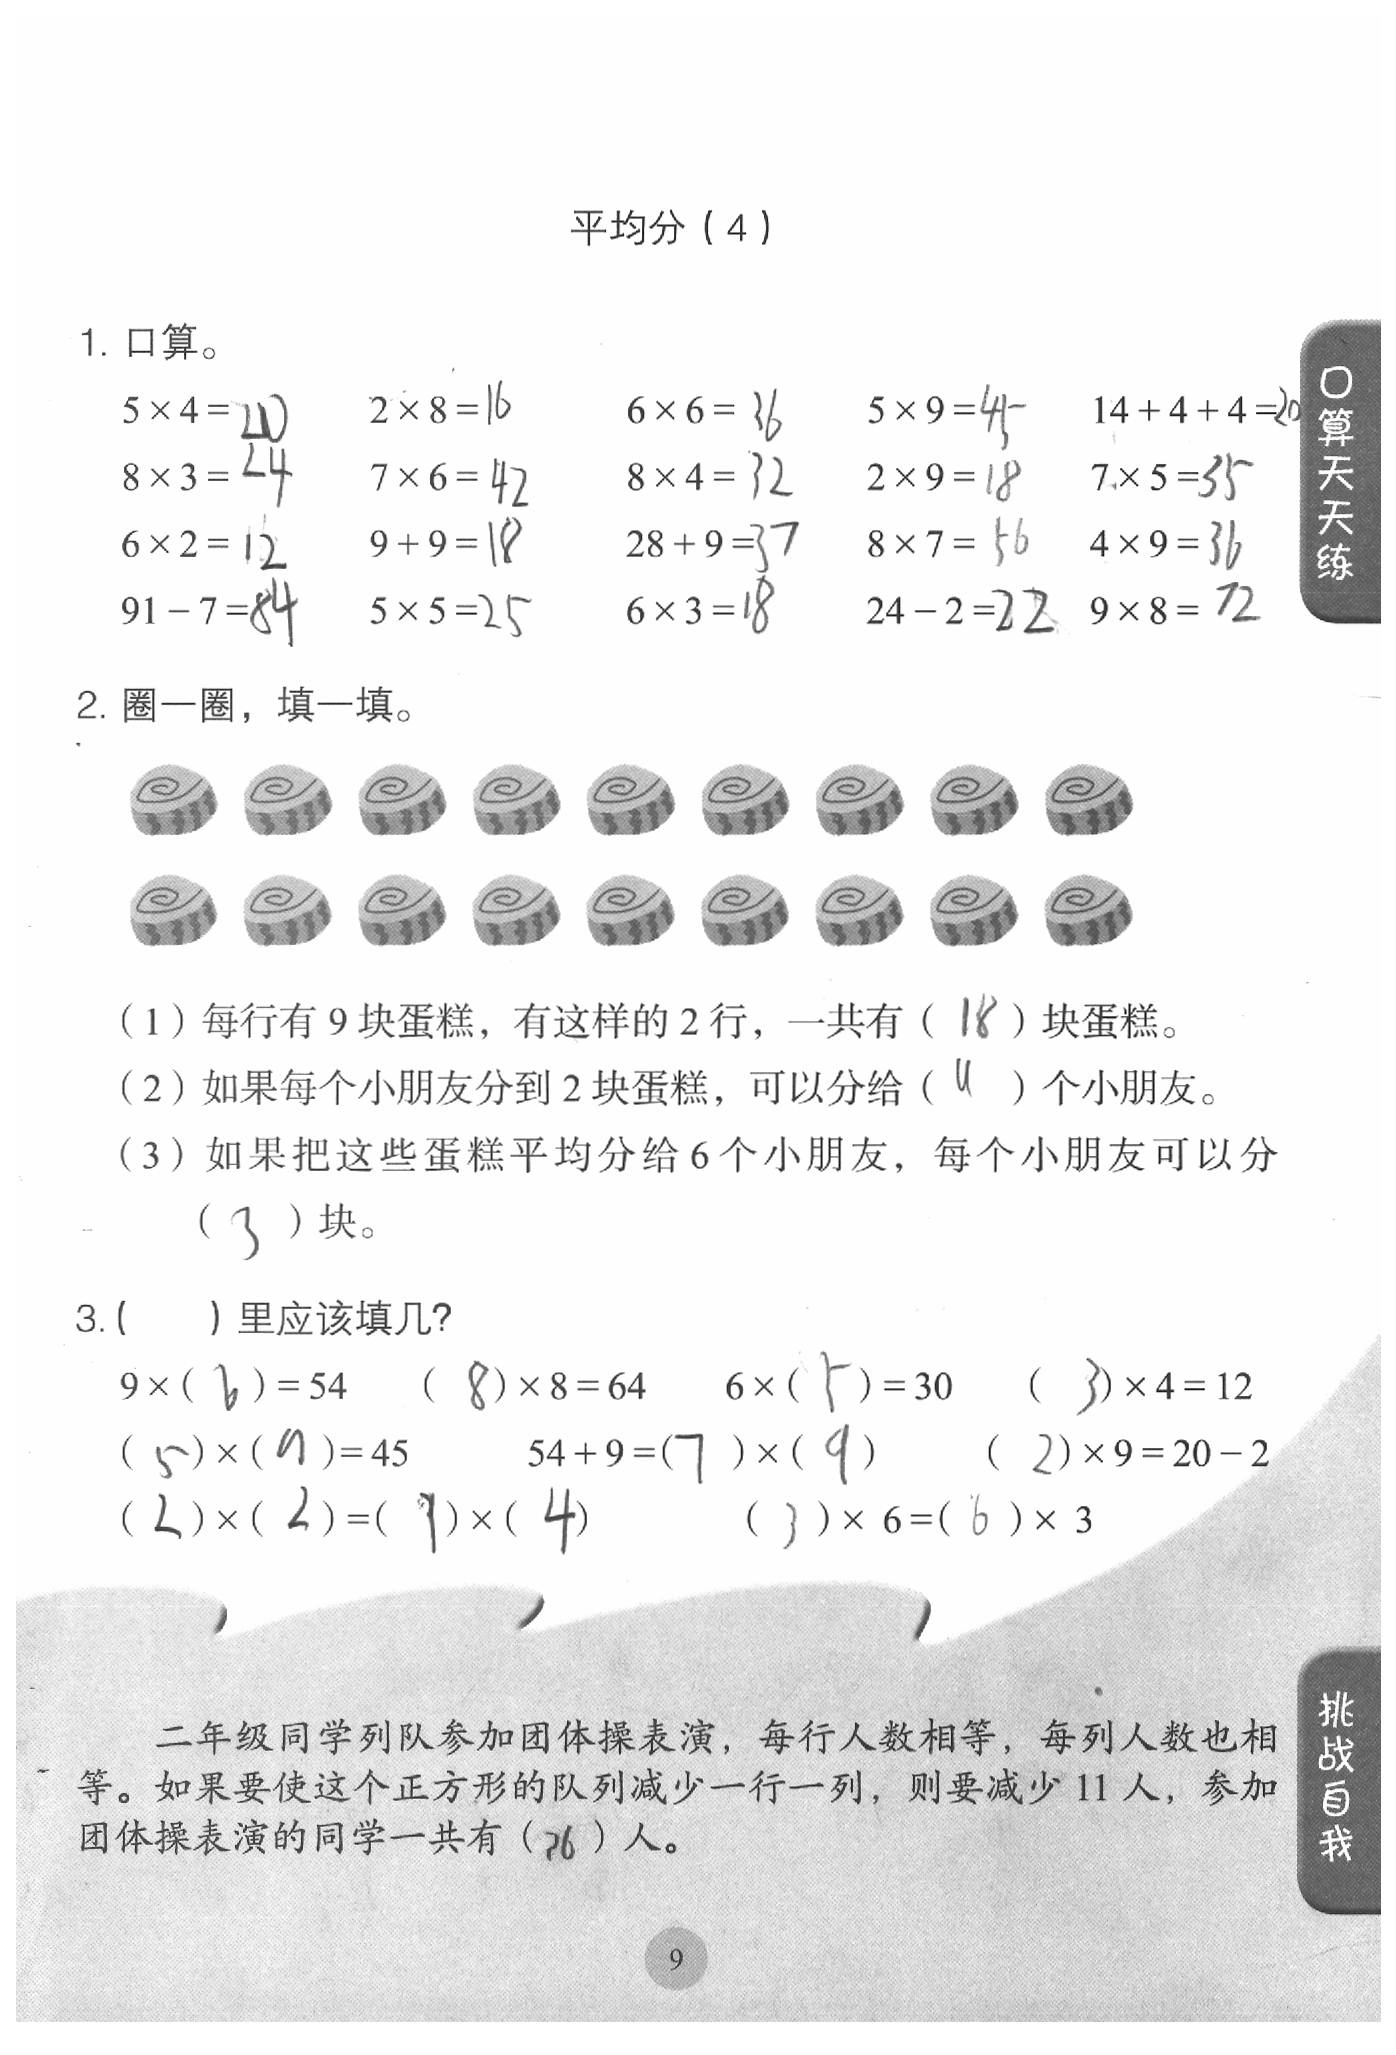 平均分（4）
1. 口算。
5×4=20 2×8=16 6×6=36 5×9=45 14+4+4=20
8×3=24 7×6=42 8×4=32 2×9=18 7×5=35
6×2=12 9+9=18 28+9=37 8×7=56 4×9=36
91-7=84 5×5=25 6×3=18 24-2=22 9×8=72
口算天天练
2. 圈一圈，填一填。
（1）每行有9块蛋糕，有这样的2行，一共有（18）块蛋糕。
（2）如果每个小朋友分到2块蛋糕，可以分给（ ）个小朋友。
（3）如果把这些蛋糕平均分给6个小朋友，每个小朋友可以分
（3）块。
3.（ ）里应该填几？
9×（6）=54 （8）×8=64 6×（5）=30 （3）×4=12
（5）×（9）=45 54+9=（7）×（9） （2）×9=20-2
（2）×（2）=（1）×（4） （3）×6=（6）×3
二年级同学列队参加团体操表演，每行人数相等，每列人数也相
等。如果要使这个正方形的队列减少一行一列，则要减少11人，参加
团体操表演的同学一共有（36）人。
挑战自我
9